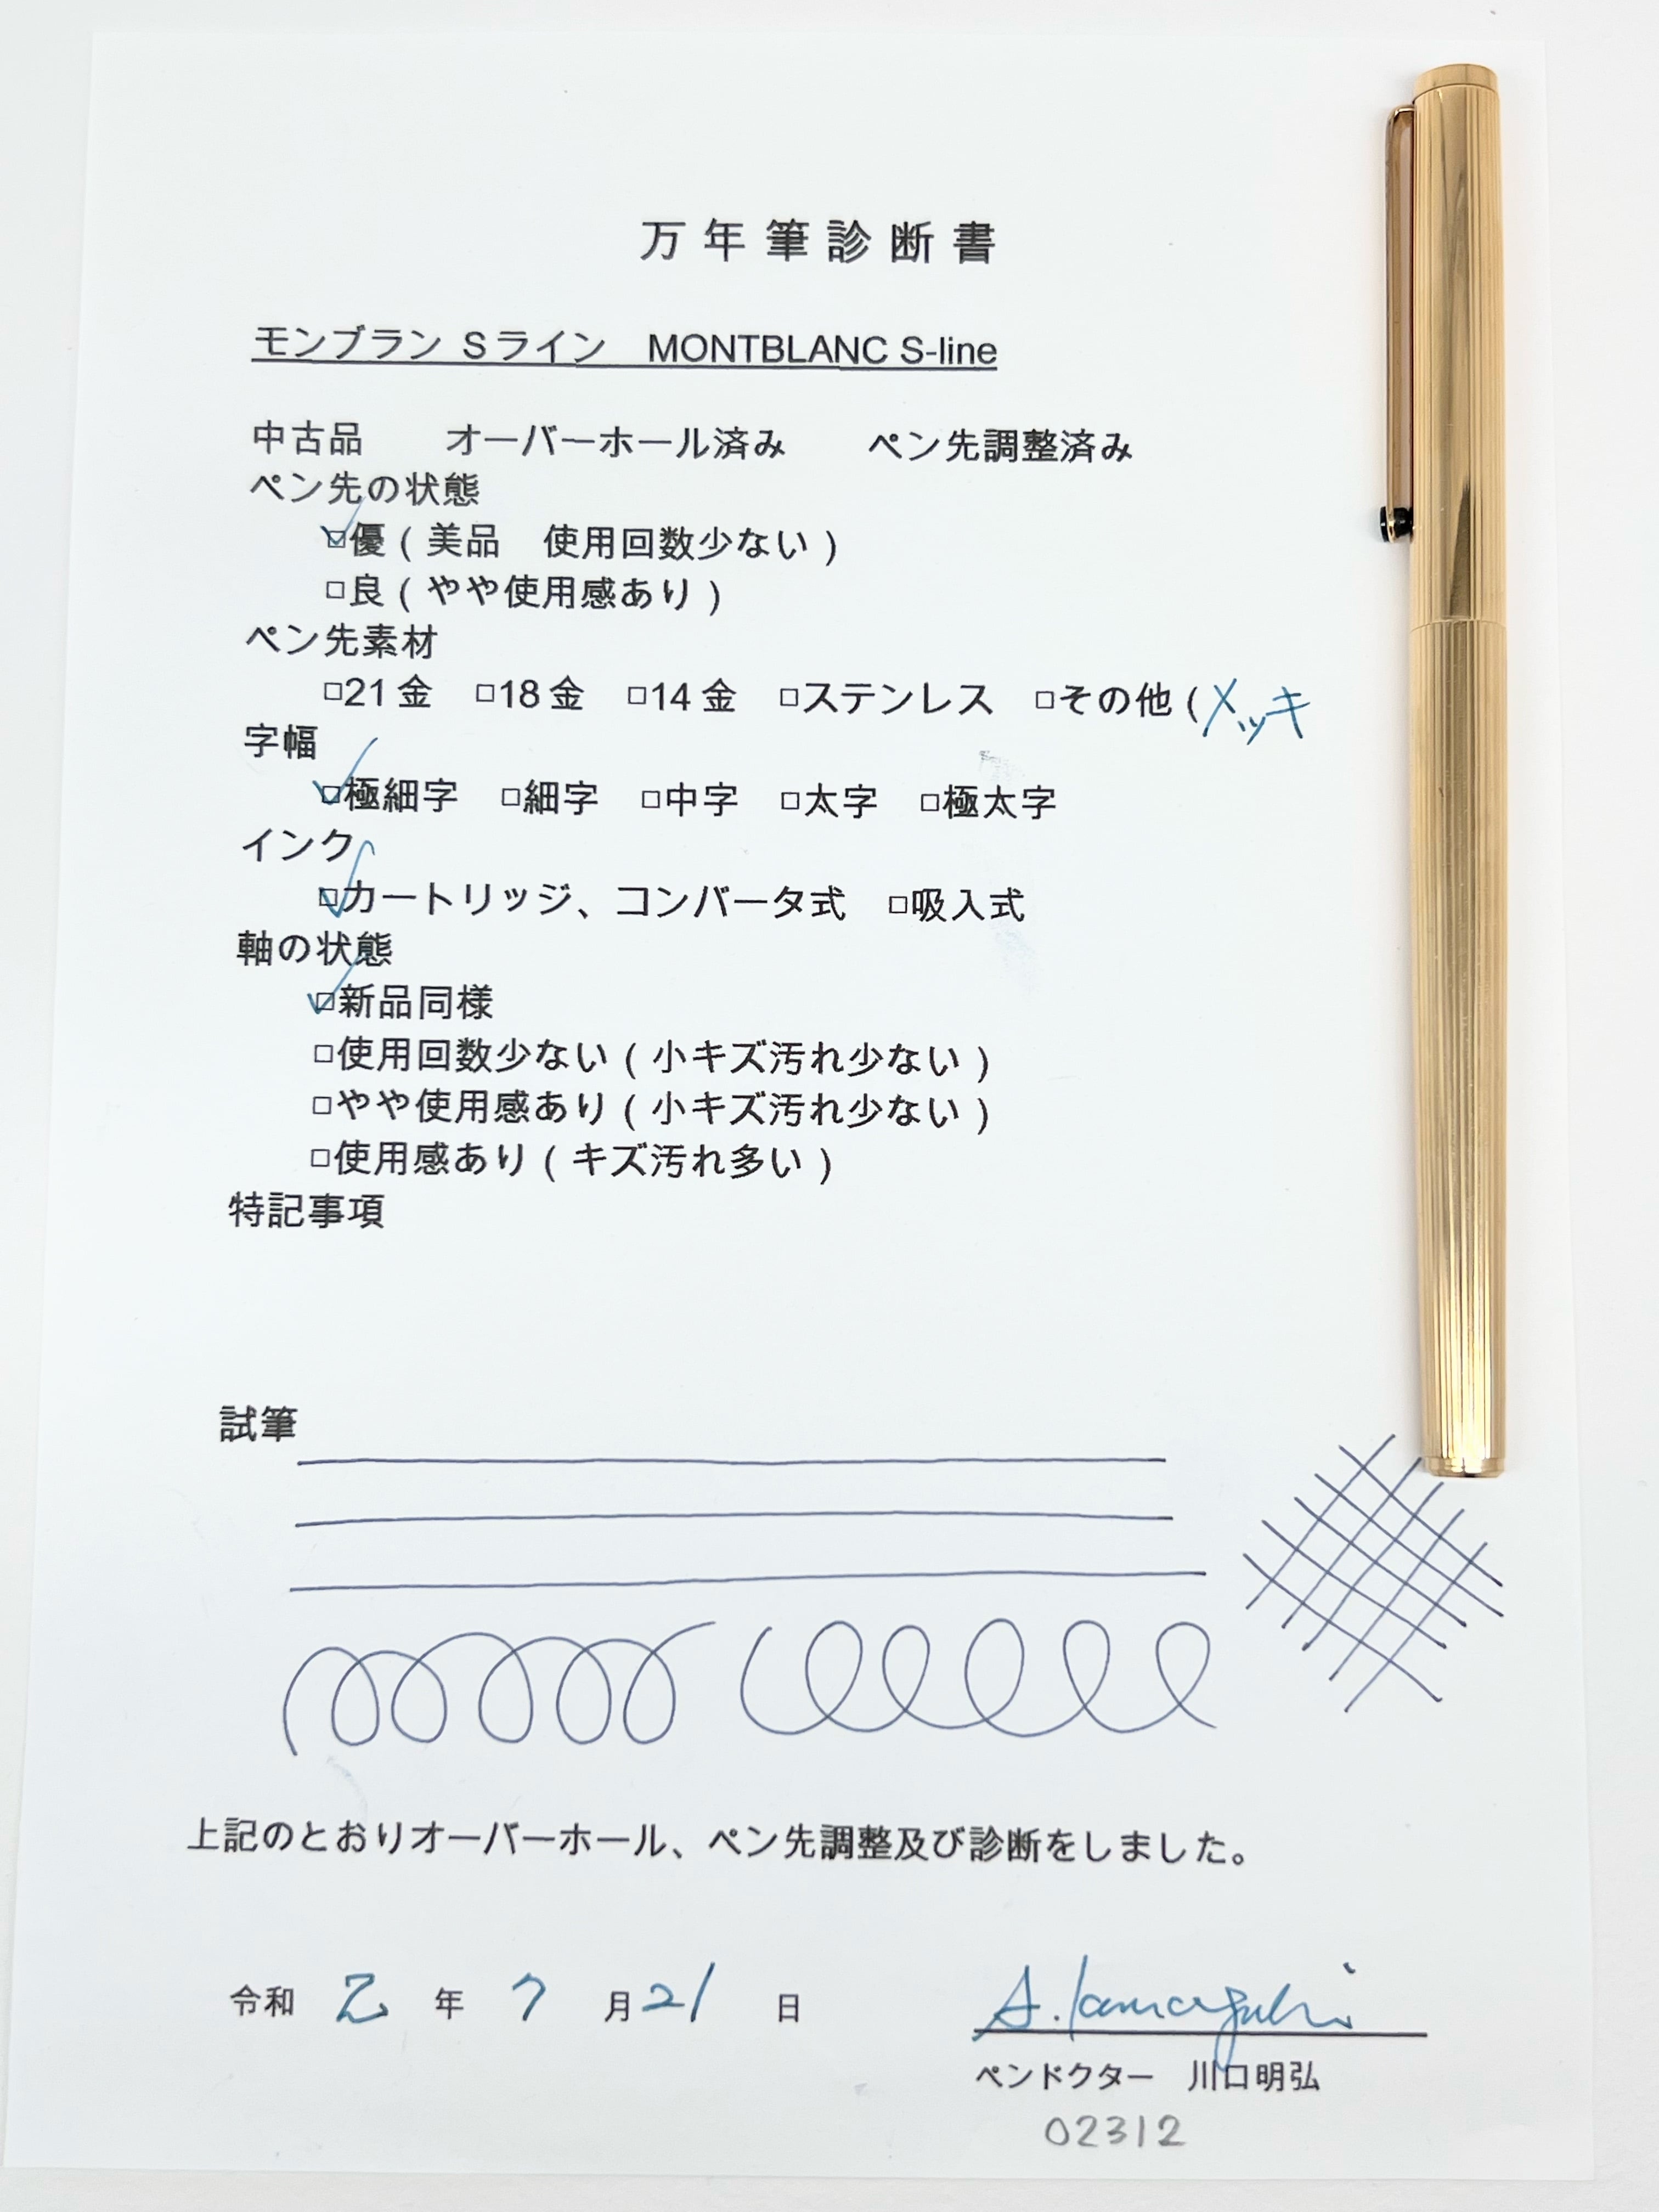 万年筆診断書
モンブラン Sライン　MONTBLANC S-line
中古品　オーバーホール済み　ペン先調整済み
ペン先の状態
☑優(美品　使用回数少ない)
□良(やや使用感あり)
ペン先素材
□21金　□18金　□14金　□ステンレス　□その他(メッキ
字幅
☑極細字　□細字　□中字　□太字　□極太字
インク
☑カートリッジ、コンバータ式　□吸入式
軸の状態
☑新品同様
□使用回数少ない(小キズ汚れ少ない)
□やや使用感あり(小キズ汚れ少ない)
□使用感あり(キズ汚れ多い)
特記事項
試筆
上記のとおりオーバーホール、ペン先調整及び診断をしました。
令和　年　7　月　21　日
ペンドクター　川口明弘
02312